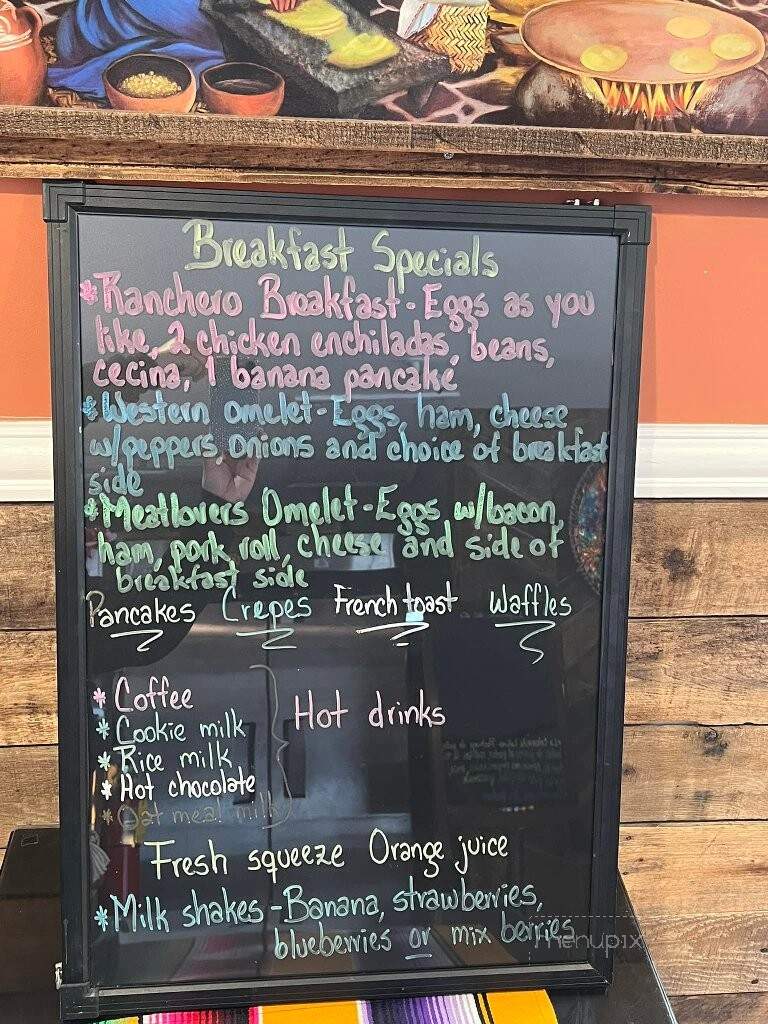 Breakfast Specials
*Ranchero Breakfast-Eggs as you
like, 2 chicken enchiladas, beans,
cecina, 1 banana pancake
*Western Omelet-Eggs, ham, cheese
w/peppers onions and choice of breakfast
side
*Meatlovers Omelet-Eggs w/bacon,
ham, pork roll, cheese and side of
breakfast side
Pancakes Crepes French toast Waffles
* Coffee
* Cookie milk
* Rice milk
* Hot chocolate
* Oat meal milk
Hot drinks
Fresh squeeze Orange juice
*Milk shakes-Banana, strawberries,
blueberries or mix berries
menupix